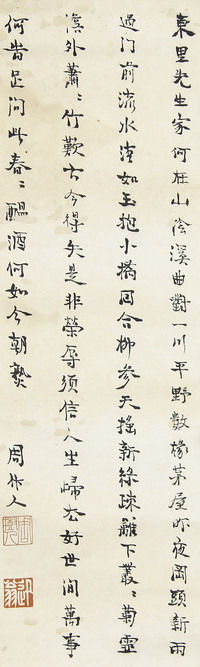 東里先生家何在山陰溪曲對一川平野數椽茅屋昨夜岡頭新雨
過門前流水清如玉抱小橋回合柳參天搖新綠疎籬下叢〻菊虛
簷外蕭〻竹歎古今得失是非榮辱須信人生歸去好世間萬事
何時足問此春〻醞酒何如今朝熟
周作人